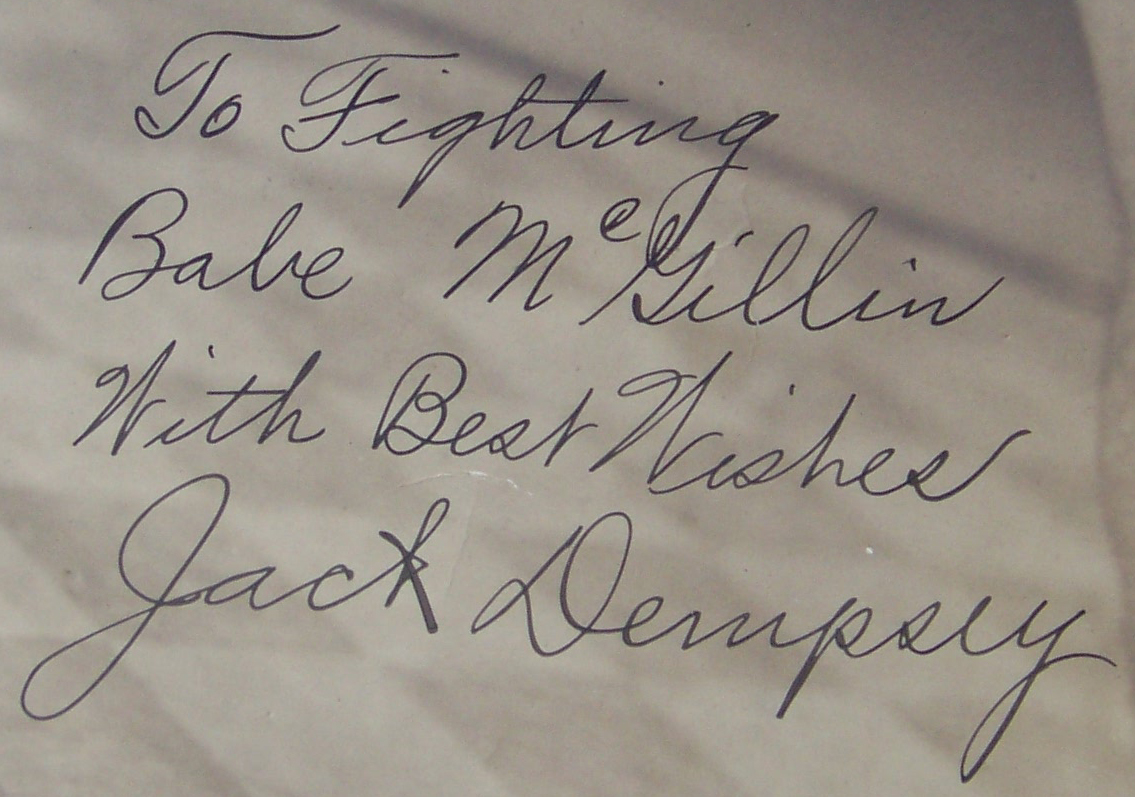 To Fighting
Babe McGillin
With Best Wishes
Jack Dempsey